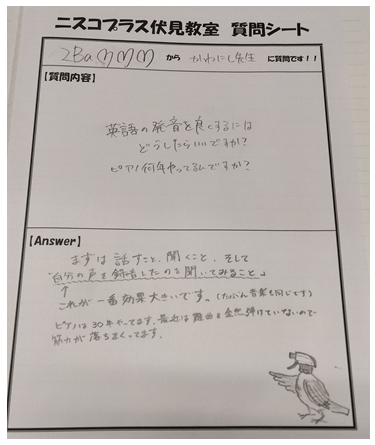 ニスコプラス伏見教室 質問シート
2Ba♡♡♡ から かわにし先生 に質問です!!
【質問内容】
英語の発音を良くするには
どうしたらいいですか?
ピアノ何年やってるんですか?
【Answer】
まずは 話すこと、聞くこと、そして
「自分の声を録音したのを聞いてみること」
↑
これが一番効果大きいです。(たぶん音楽も同じです)
ピアノは30年やってます。最近は難曲を全然弾けていないので
筋力が落ちまくってます。